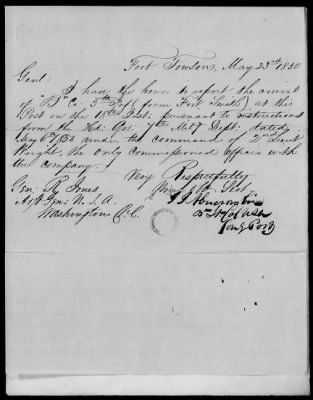 Fort Towson, May 23d 1850
Genl:
I have the honor to report the arrival
of "B" Co. 5th Inf. (from Fort Smith) at this
Post on the 18th Inst. pursuant to instructions
from the Hd. Qrs. 7th Mil. Dept. dated
May 6th /50 under the command of 2nd Lieut
Wright, the only commissioned officer with
the company.
Very Respectfully
Your Obt. Svt.
Gen: R. Jones
Adjt Gen: U.S.A.
Washington D.C.
J. J. Abercrombie
Comg Post